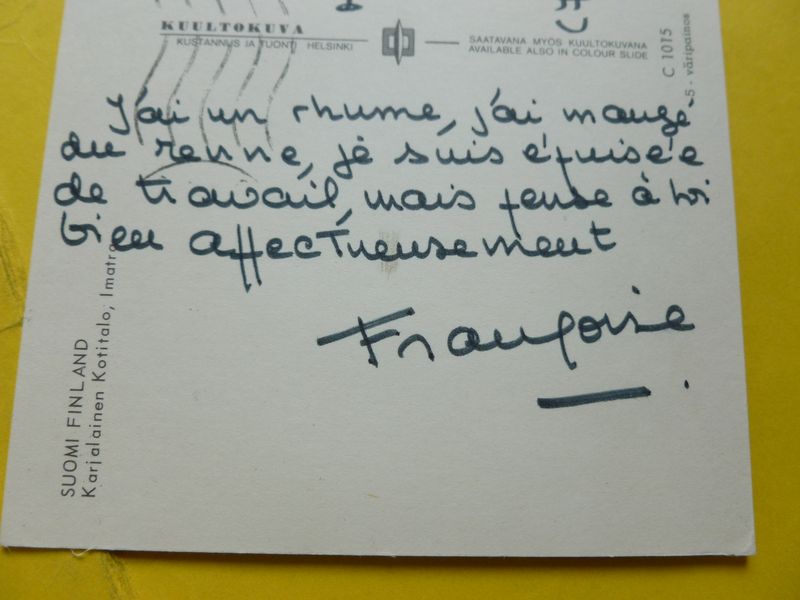 KUULTOKUVA
KUSTANNUS JA TUONTI HELSINKI
SAATAVANA MYÖS KUULTOKUVANA
AVAILABLE ALSO IN COLOUR SLIDE
C 1015
5 - väripainos
J'ai un rhume, j'ai mangé
du renne, je suis épuisée
de travail, mais pense à toi
bien affectueusement
Françoise
SUOMI FINLAND
Karjalainen Kotitalo, Imatra